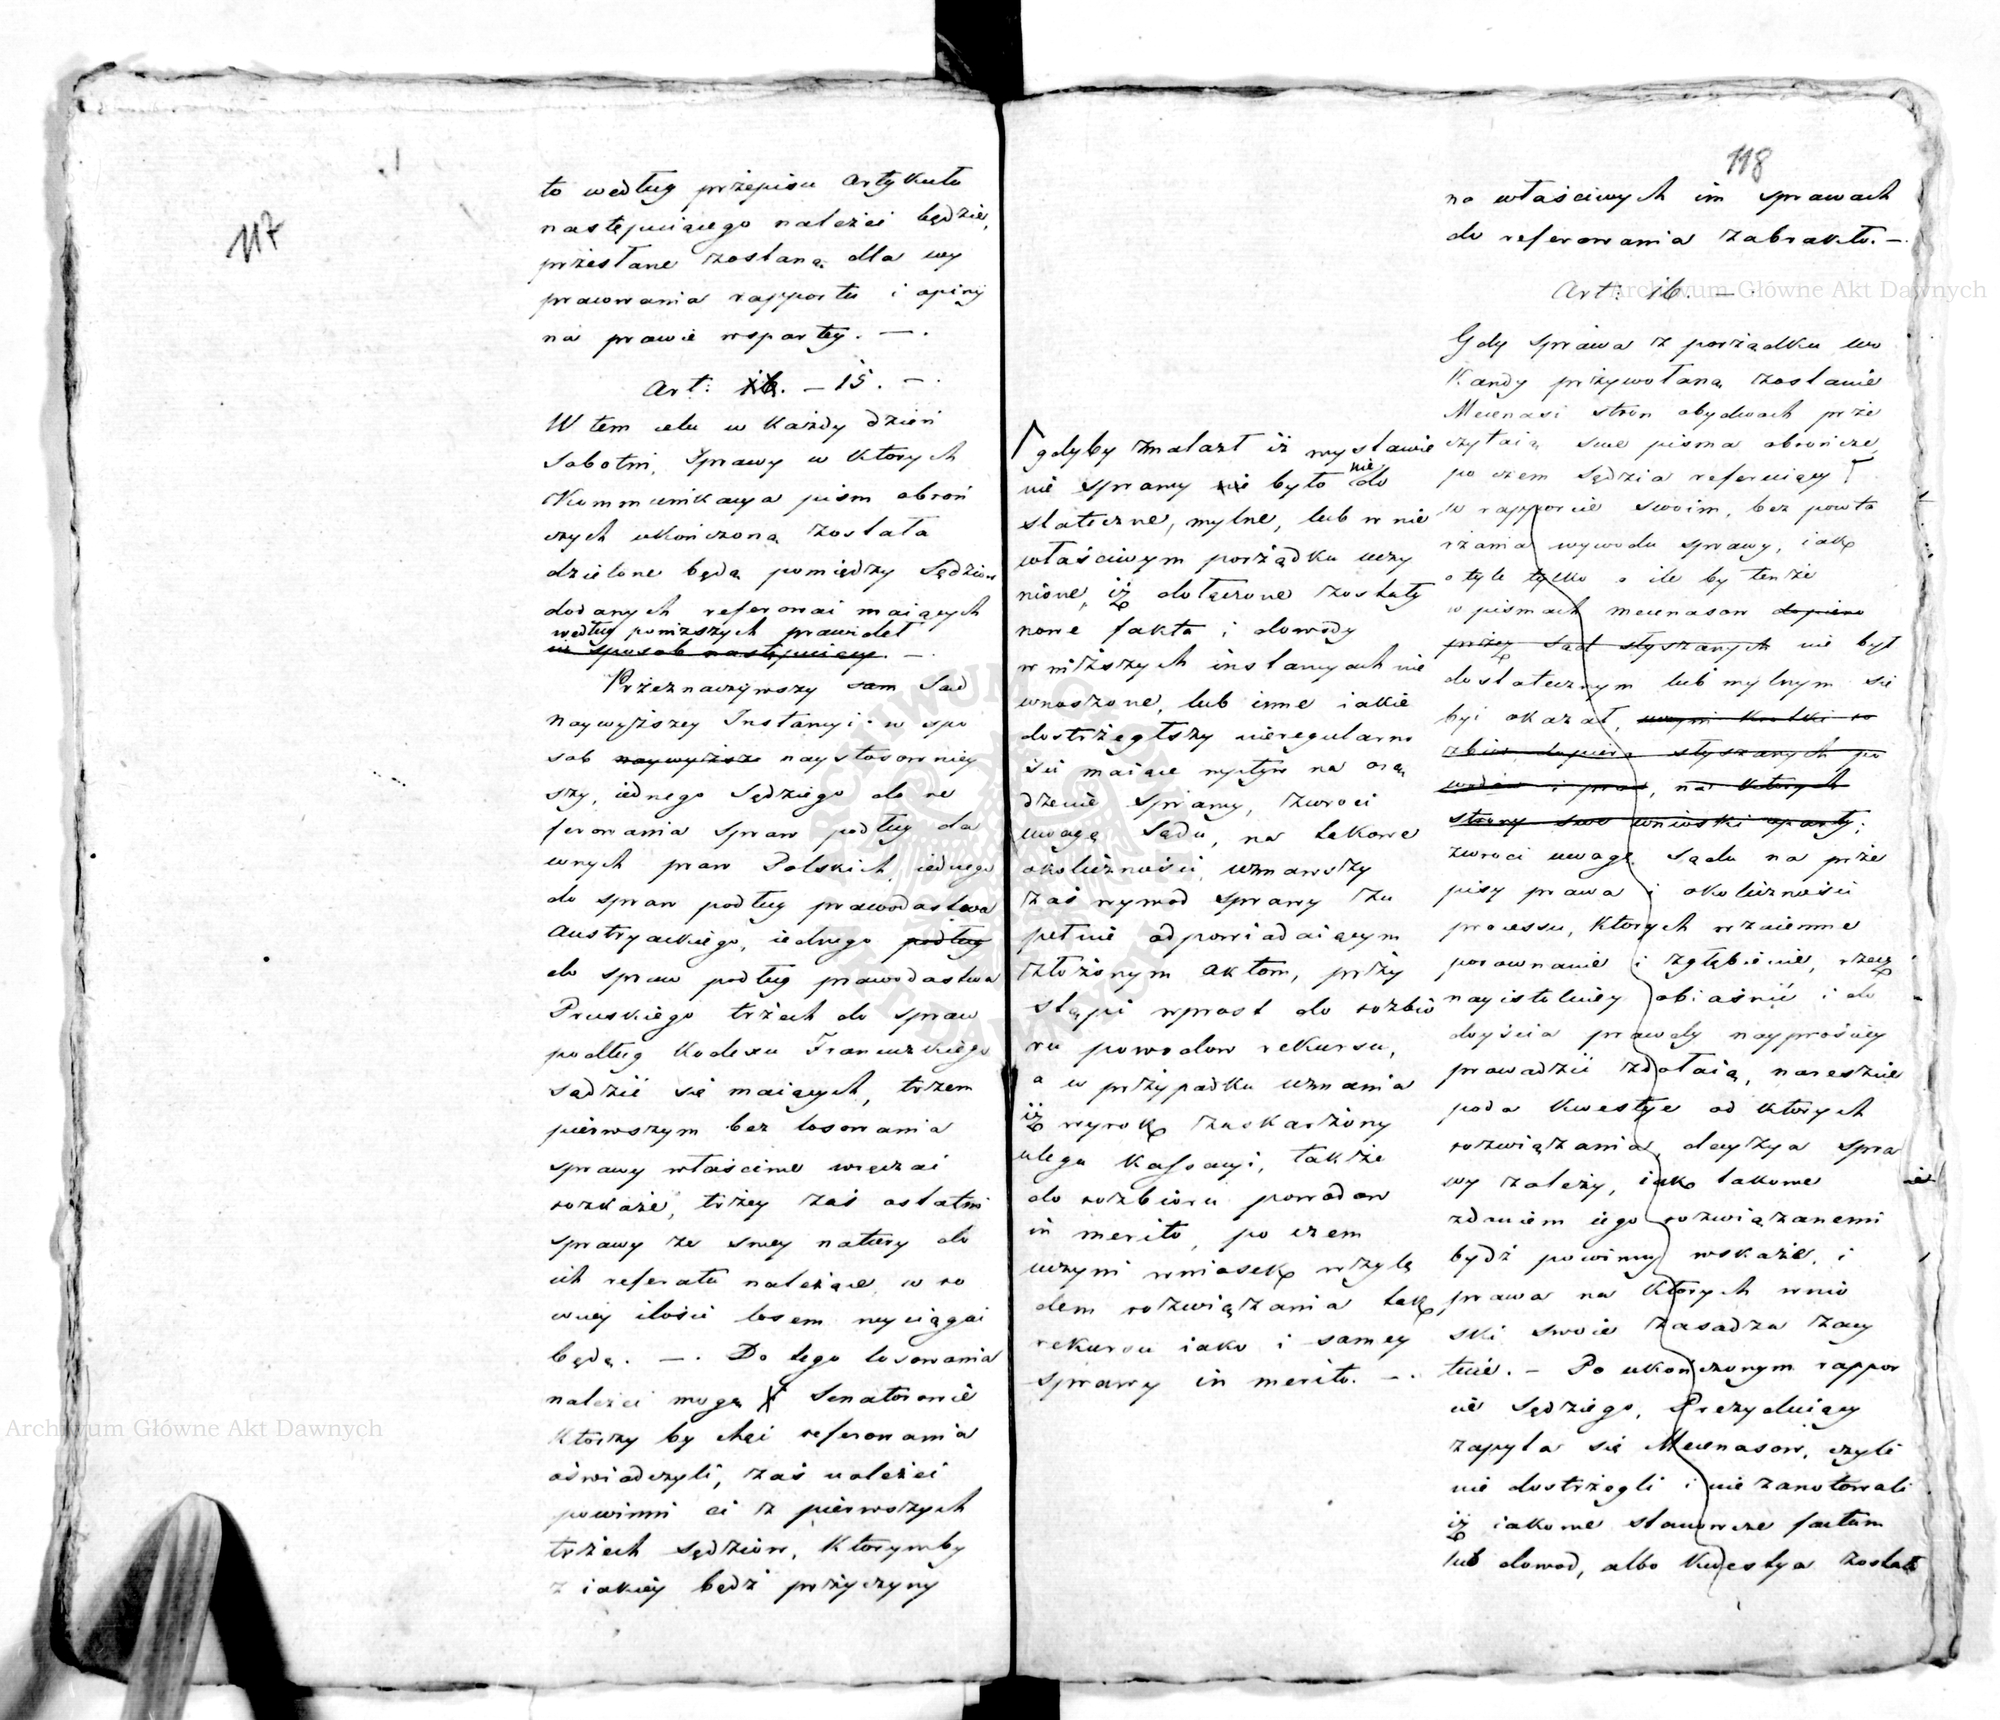 117
to według przepisu Artykułu
następuiącego należeć będzie,
przesłane zostaną dla wy
pracowania rapportu i opinij
na prawie wspartey. —.
Art: 16. — 15. —.
W tem celu w każdy dzień
Sobotni, Sprawy w których
Kommunikacya pism obroń
czych ukończoną została
dzielone będą pomiędzy Sędziow
dodanych referować maiących
według poniższych prawideł
w sposob następuiący. —.
Przeznaczywszy sam Sąd
naywyższey Instancyi w spo
sob naywyższe naystosowniey
szy, iednego Sędziego do re
ferowania spraw podług da
wnych praw Polskich, iednego
do spraw podług prawodastwa
Austryackiego, iednego podług
do spraw podług prawodastwa
Pruskiego trzech do spraw
podług Kodexu Francuzkiego
sądzić się maiących, trzem
pierwszym bez losowania
sprawy właściwe wręczać
rozkaże, trzey zaś ostatni
sprawy ze swey natury do
ich referatu należące w ro
wney ilości losem wyciągać
będą. —. Do tego losowania
należeć mogą Senatorowie
którzy by chęć referowania
oświadczyli, zaś należeć
powinni ci z pierwszych
trzech Sędziow, którymby
z iakiey bądź przyczyny
118
na właściwych im sprawach
do referowania zabrakło. —.
Art: 16. —.
Gdy sprawa z porządku wo
kandy przywołaną zostanie
Mecenasi stron obydwoch prze
czytaią swe pisma obrończe,
po czem Sędzia referuiący
w rapporcie swoim, bez powta
rzania wywodu sprawy, iak
o tyle tylko o ile by tenże
w pismach mecenasow dopiero
przez Sąd słyszanych nie był
dostatecznym lub mylnym się
być okazał, uczyni krotki ro
zbior dopiero słyszanych po
wodow i praw, na których
strony swe wnioski oparły;
zwroci uwagę Sądu na prze
pisy prawa i okoliczności
processu, których wzaiemne
porownanie i zgłębienie, rzecz
nayistotniey obiaśnić i do
doyścia prawdy nayprościey
prowadzić zdołaią, nareszcie
poda kwestye od których
rozwiązania, decyzya spra
wy zależy, iak takowe
zdaniem iego rozwiązanemi
bydź powinny wskaże, i
prawa na których wnio
ski swoie zasadza zacy
tuie. — Po ukończonym rappor
cie Sędziego, Prezyduiący
zapyta się Mecenasow, czyli
nie dostrzegli i nie zanotowali
iż iakowe stanowcze factum
lub dowod, albo kwestya została
gdyby znalazł iż wystawie
nie sprawy nie było nie do
stateczne, mylne, lub w nie
właściwym porządku uczy
nione, iż dołączone zostały
nowe fakta i dowody
w niższych instancyach nie
wnoszone, lub inne iakie
dostrzegłszy nieregularno
ści maiące wpływ na osą
dzenie sprawy, zwroci
uwagę Sądu, na takowe
okoliczności, uznawszy
zaś wywod sprawy zu
pełnie odpowiadaiącym
złożonym aktom, przy
stąpi wprost do rozbio
ru powodow rekursu,
a w przypadku uznania
iż wyrok zaskarżony
ulega Kassacyi, także
do rozbioru powodow
in merito, po czem
uczyni wniosek wzglę
dem rozwiązania tak
rekursu iako i samey
sprawy in merito. —.
Archiwum Główne Akt Dawnych
Archiwum Główne Akt Dawnych